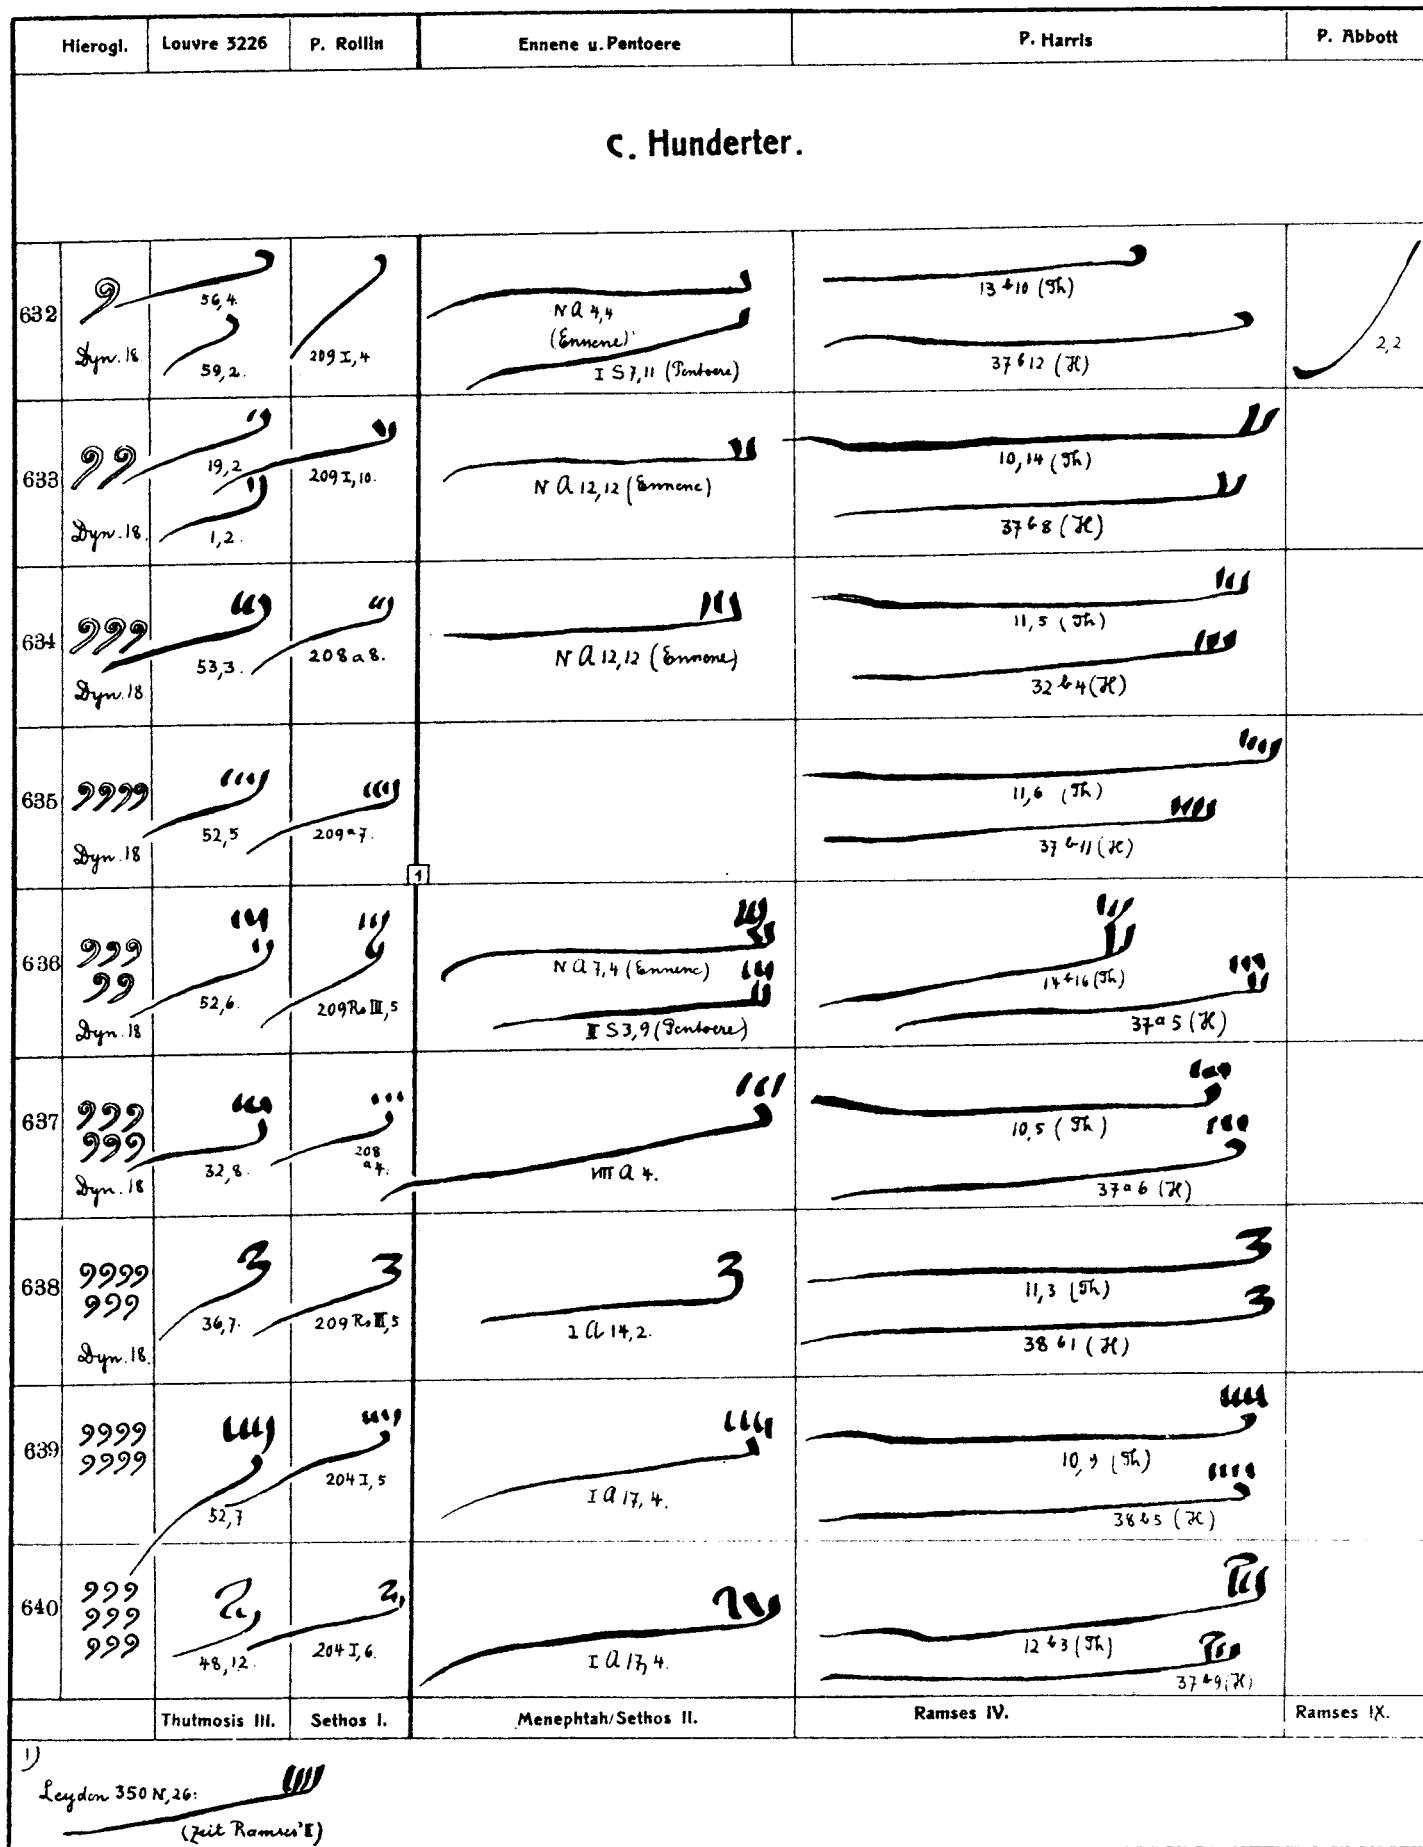 Hierogl. Louvre 3226 P. Rollin Ennene u. Pentoere P. Harris P. Abbott
C. Hunderter.
632
Dyn. 18
56,4.
59,2.
209 I,4
IV A 4,4
(Ennene)
I S 7,11 (Pentoere)
13 b 10 (Th)
37 b 12 (H)
2,2
633
Dyn. 18.
19,2
1,2.
209 I,10.
IV A 12,12 (Ennene)
10,14 (Th)
37 b 8 (H)
634
Dyn. 18
53,3.
208 a 8.
IV A 12,12 (Ennene)
11,5 (Th)
32 b 4 (H)
635
Dyn. 18
52,5
209 a 7.
11,6 (Th)
37 b 11 (H)
1
636
Dyn. 18
52,6.
209 Ro III,5
IV A 7,4 (Ennene)
II S 3,9 (Pentoere)
14 b 16 (Th)
37 a 5 (H)
637
Dyn. 18
32,8.
208
a 4.
VIII A 4.
10,5 (Th)
37 a 6 (H)
638
Dyn. 18.
36,7.
209 Ro III,5
I A 14,2.
11,3 (Th)
38 b 1 (H)
639
52,7
204 I,5
I A 17,4.
10,9 (Th)
38 b 5 (H)
640
48,12.
204 I,6.
I A 17,4.
12 b 3 (Th)
37 b 9 (H)
Thutmosis III. Sethos I. Menephtah/Sethos II. Ramses IV. Ramses IX.
1)
Leyden 350 IV,26:
(Zeit Ramses' II)